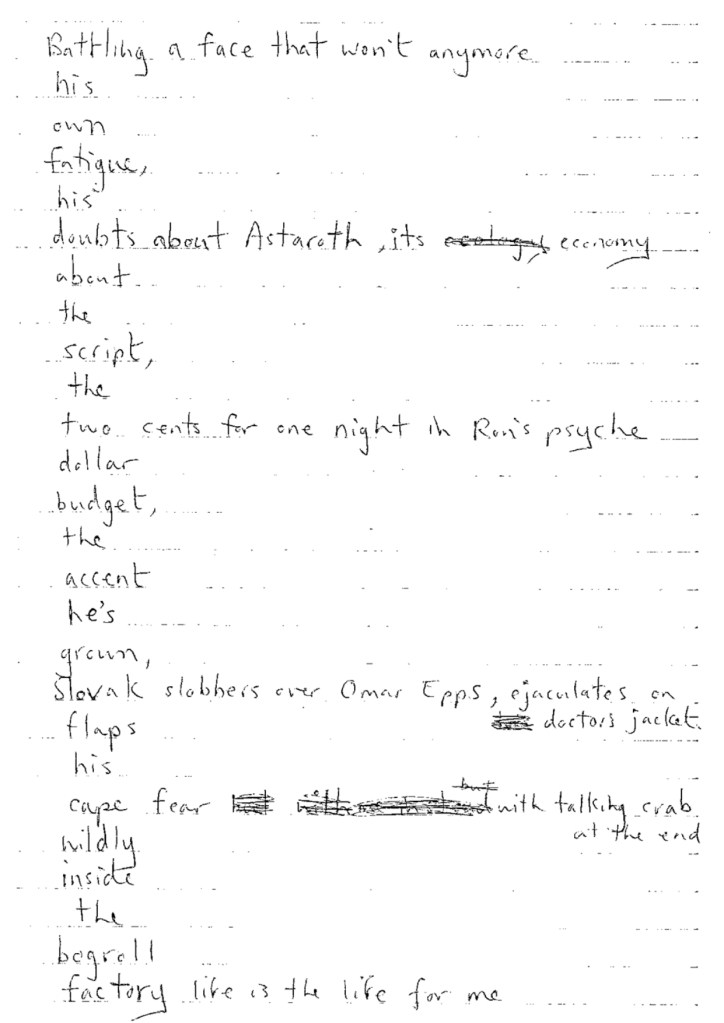 Battling a face that won't anymore
his
own
fatigue,
his
doubts about Astaroth, its ecology, economy
about
the
script,
the
two cents for one night in Ron's psyche
dollar
budget,
the
accent
he's
grown,
Slovak slobbers over Omar Epps, ejaculates on
flaps doctor's jacket.
his
cape fear but with talking crab
wildly at the end
inside
the
bogroll
factory life is the life for me